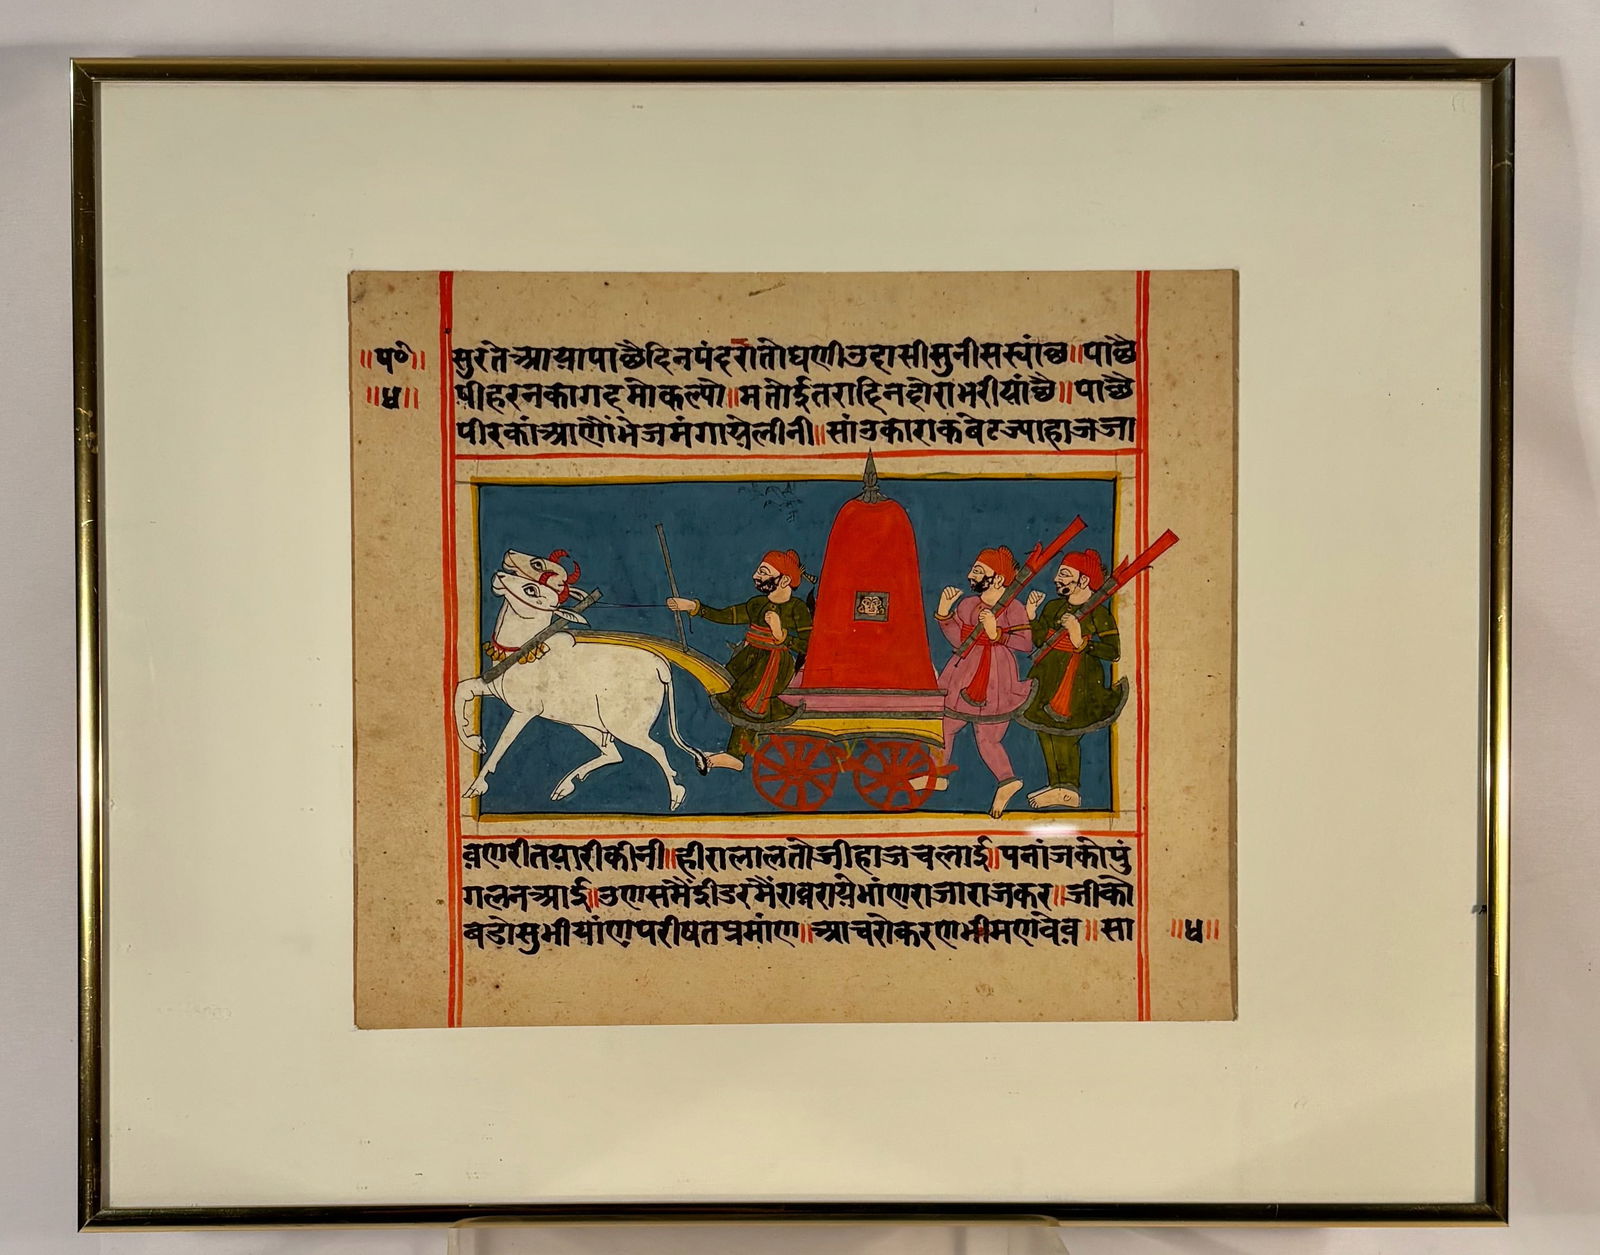 ॥प०॥
॥ध॥
सुरतेआयापाछैदिनपंदरांतोघणीउदासीसुनीसरयांछ॥पाछै
पीहरनकागदमोकल्यो॥मतोईतरादिनदोराभरीयांछै॥पाछै
पीरकांआणैंभेजमंगायेलीनी॥सांउकाराकबेटज्याहाजजा
वणरीतयारीकीनी॥हीरालालतोजीहाजचलाई॥पनांजकोपुं
गलनआई॥उणसंमैंईडरमैंरावरायेभांणराजाराजकर॥जीको
बडोसुभीयांणपरीषतप्रमांण॥आचरोकरणभीमणंवेव॥सा
॥ध॥